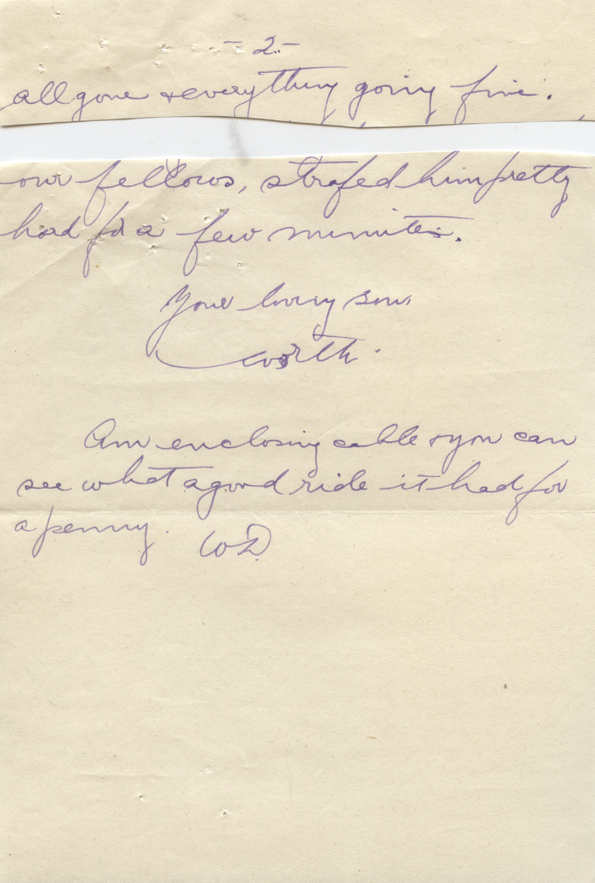 -2-
all gone & everything going fine.
our fellows, strafed him pretty
hard for a few minutes.
Your loving son
Worth.
Am enclosing cable & you can
see what a good ride it had for
a penny. WD